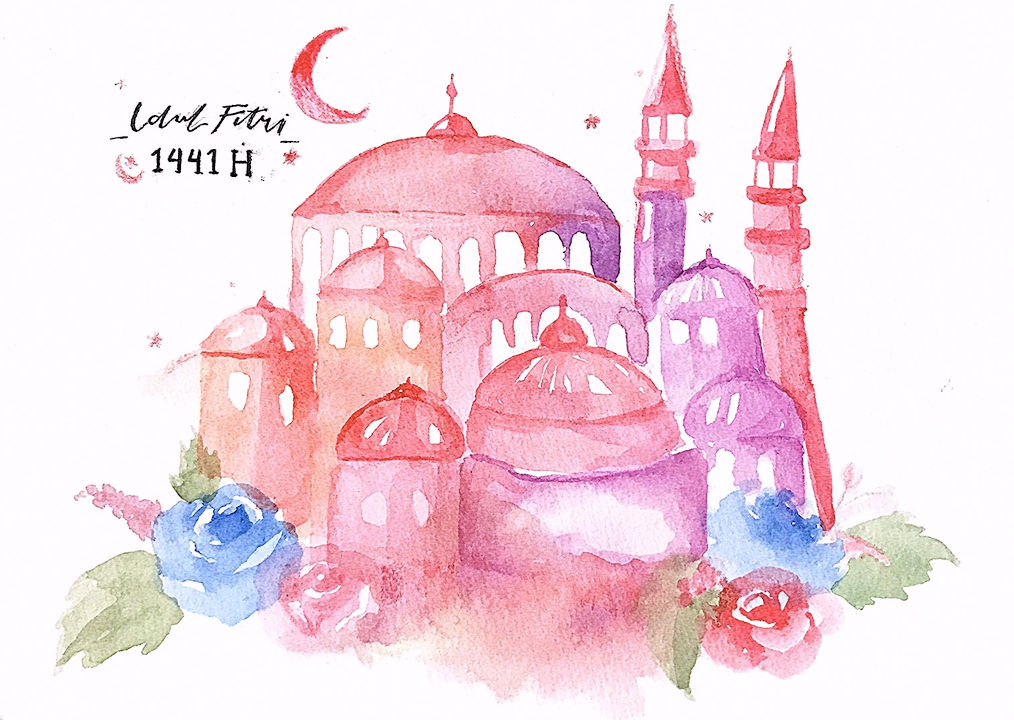 Idul Fitri
1441 H